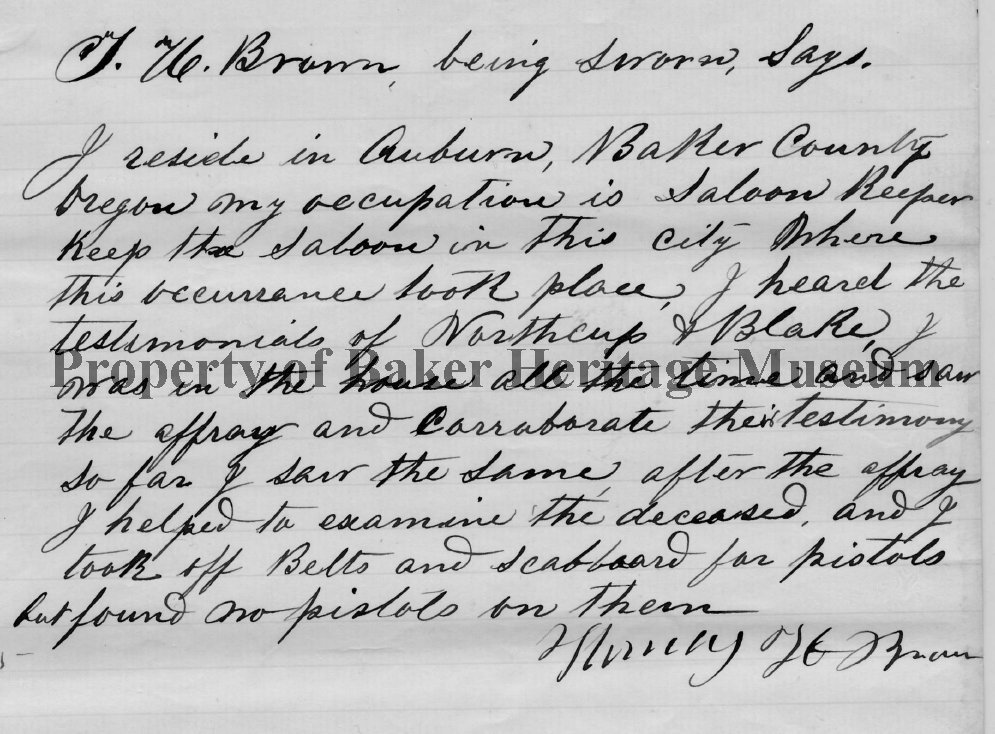 T. H. Brown, being sworn, Says.
I reside in Auburn, Baker County
Oregon my occupation is Saloon Keeper
Keep the Saloon in this city Where
this occurrance took place, I heard the
testimonials of Northcup & Blake, I
Property of Baker Heritage Museum
was in the house all the time and saw
the affray and Corraborate their testimony
so far I saw the same, after the affray
I helped to examine the deceased, and I
took off Belts and scabboard for pistols
but found no pistols on them
H Brown